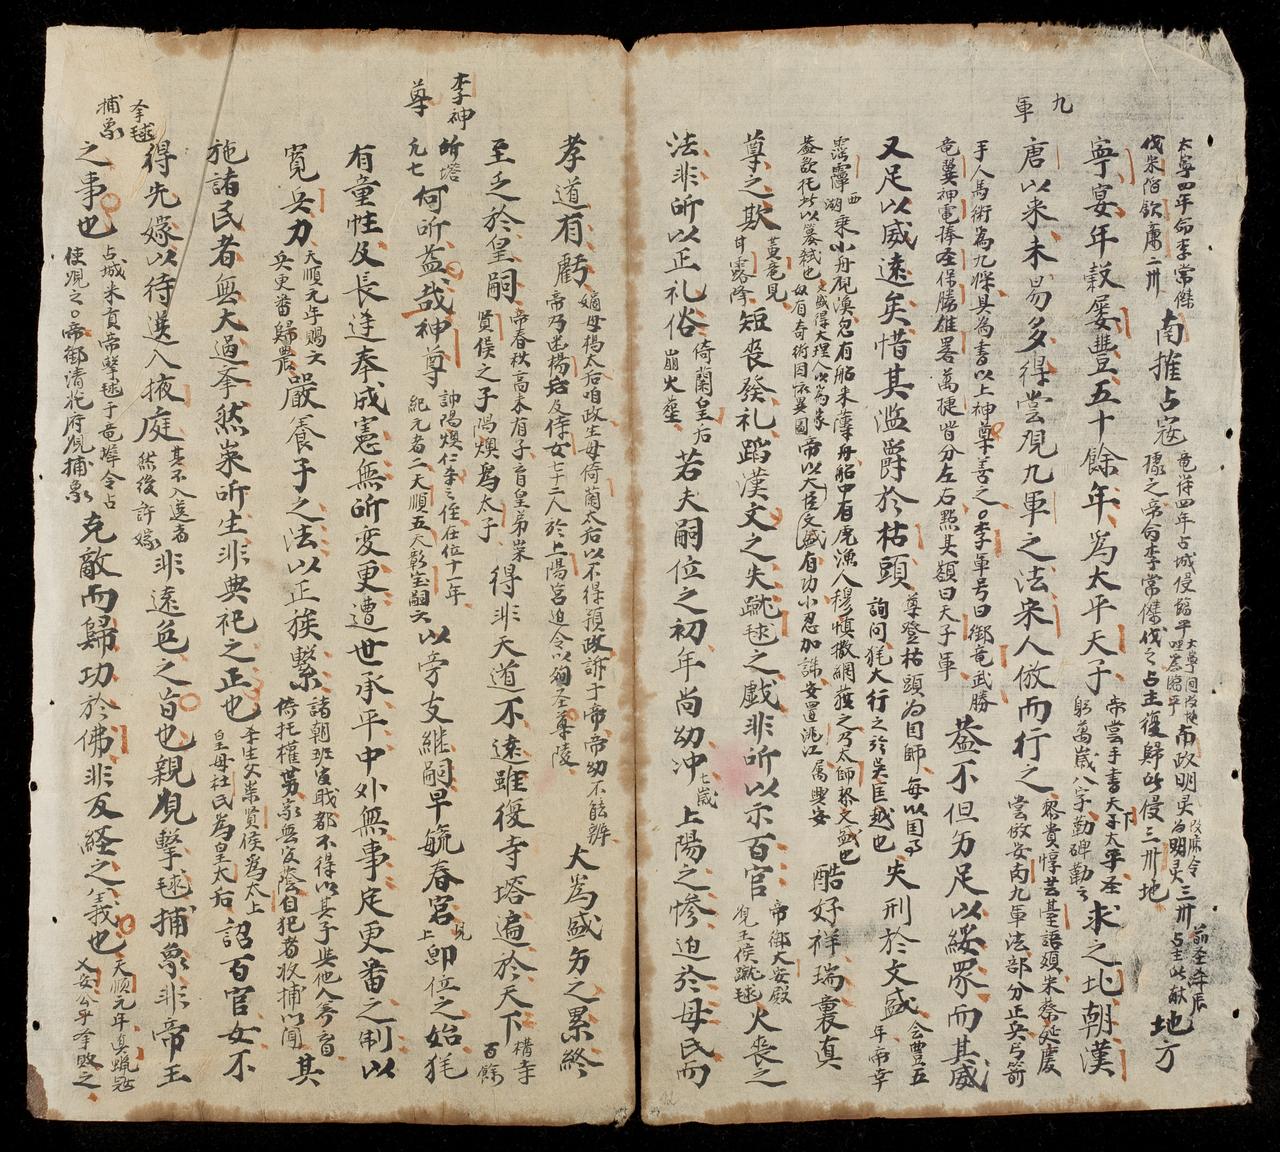 九軍
太寧四年命李常傑
伐宋陷欽廉二州
南摧占寇
竜符四年占城侵臨平
擾之帝命李常傑伐之占主復歸所侵三州地
南政明灵
三州
地方
寧宴年穀屡豊五十餘年為太平天子
帝嘗手書天下太平圣
躬萬歲八字勒碑勒之
求之北朝漢
唐以來未易多得嘗覌九軍之法宋人倣而行之
黎貴惇芸䑓語類宋蔡延慶
嘗倣安南九軍法部分正兵弓箭
手人馬術為九牒其為書以上神尊善之○李軍号曰御竜武勝
竜翼神電捧圣保勝雄畧萬捷皆分左右㸃其額曰天子軍
盖不但另足以綏眾而其威
又足以威遠矣惜其滥爵於枯頭
尊登枯頭為囯師每以囯事
詢問猶大行之於吳匡越也
失刑於文盛
会豊五
年帝幸
霪潭湖
西
乘小舟覌漁忽有船来薄舟船中有虎漁人穆慎撒網蔟之乃太師黎文盛也
盖欲托此以簒弒也文盛得大理人以為家奴有奇術因依異囯
帝以大臣文盛有功小忍加誅安置洮江属興安
酷好祥瑞裏真
尊之欺
黃竜見
甘露降
短喪發礼蹈漢文之失蹴毬之戯非所以示百官
帝御大安殿
覌王侯蹴毬
火喪之
法非所以正礼俗
倚蘭皇后
崩火塟
若夫嗣位之初年尚幼冲
七歲
上陽之惨迫於母氏而
孝道有虧
嫡母楊太后咱政生母倚蘭太后以不得預政訴于帝帝幼不能辨
帝乃囚楊后及侍女七十二人於上陽宮迫令以殉圣尊陵
大為盛另之累終
至乏於皇嗣
帝春秋高未有子育皇弟崇
賢侯之子陽煥為太子
得非天道不遠雖復寺塔遍於天下
構寺
百餘
李神
尊
所
塔
九七
何所益哉神尊
諱陽煥仁孝之侄在位十一年
紀元者二天順五天彰宝嗣六
以旁支継嗣早毓春宮
見
上
即位之始猶
有童性及長逹奉成憲無所変更遭世承平中外無事定更番之制以
寬兵力
天順元年賜六
兵更番歸農
嚴養子之法以正族繫
諸朝班宦戝都不得以其子與他人養育
倚托權勢家無後蔭自犯者收捕以闻
其
施諸民者無大過舉然崇所生非典祀之正也
李生父崇賢侯為太上
皇母杜氏為皇太后
詔百官女不
得先嫁以待選入掖庭
其不入選者
然後許嫁
非遠色之旨也親覌擊毬捕象非帝王
拿毬
捕象
之事也
占城来貢帝擊毬于竜墀令占
使覌之○帝御清化府覌捕象
克敵而歸功於佛非反経之義也
天順元年真蝋寇
乂安公平拿敗之